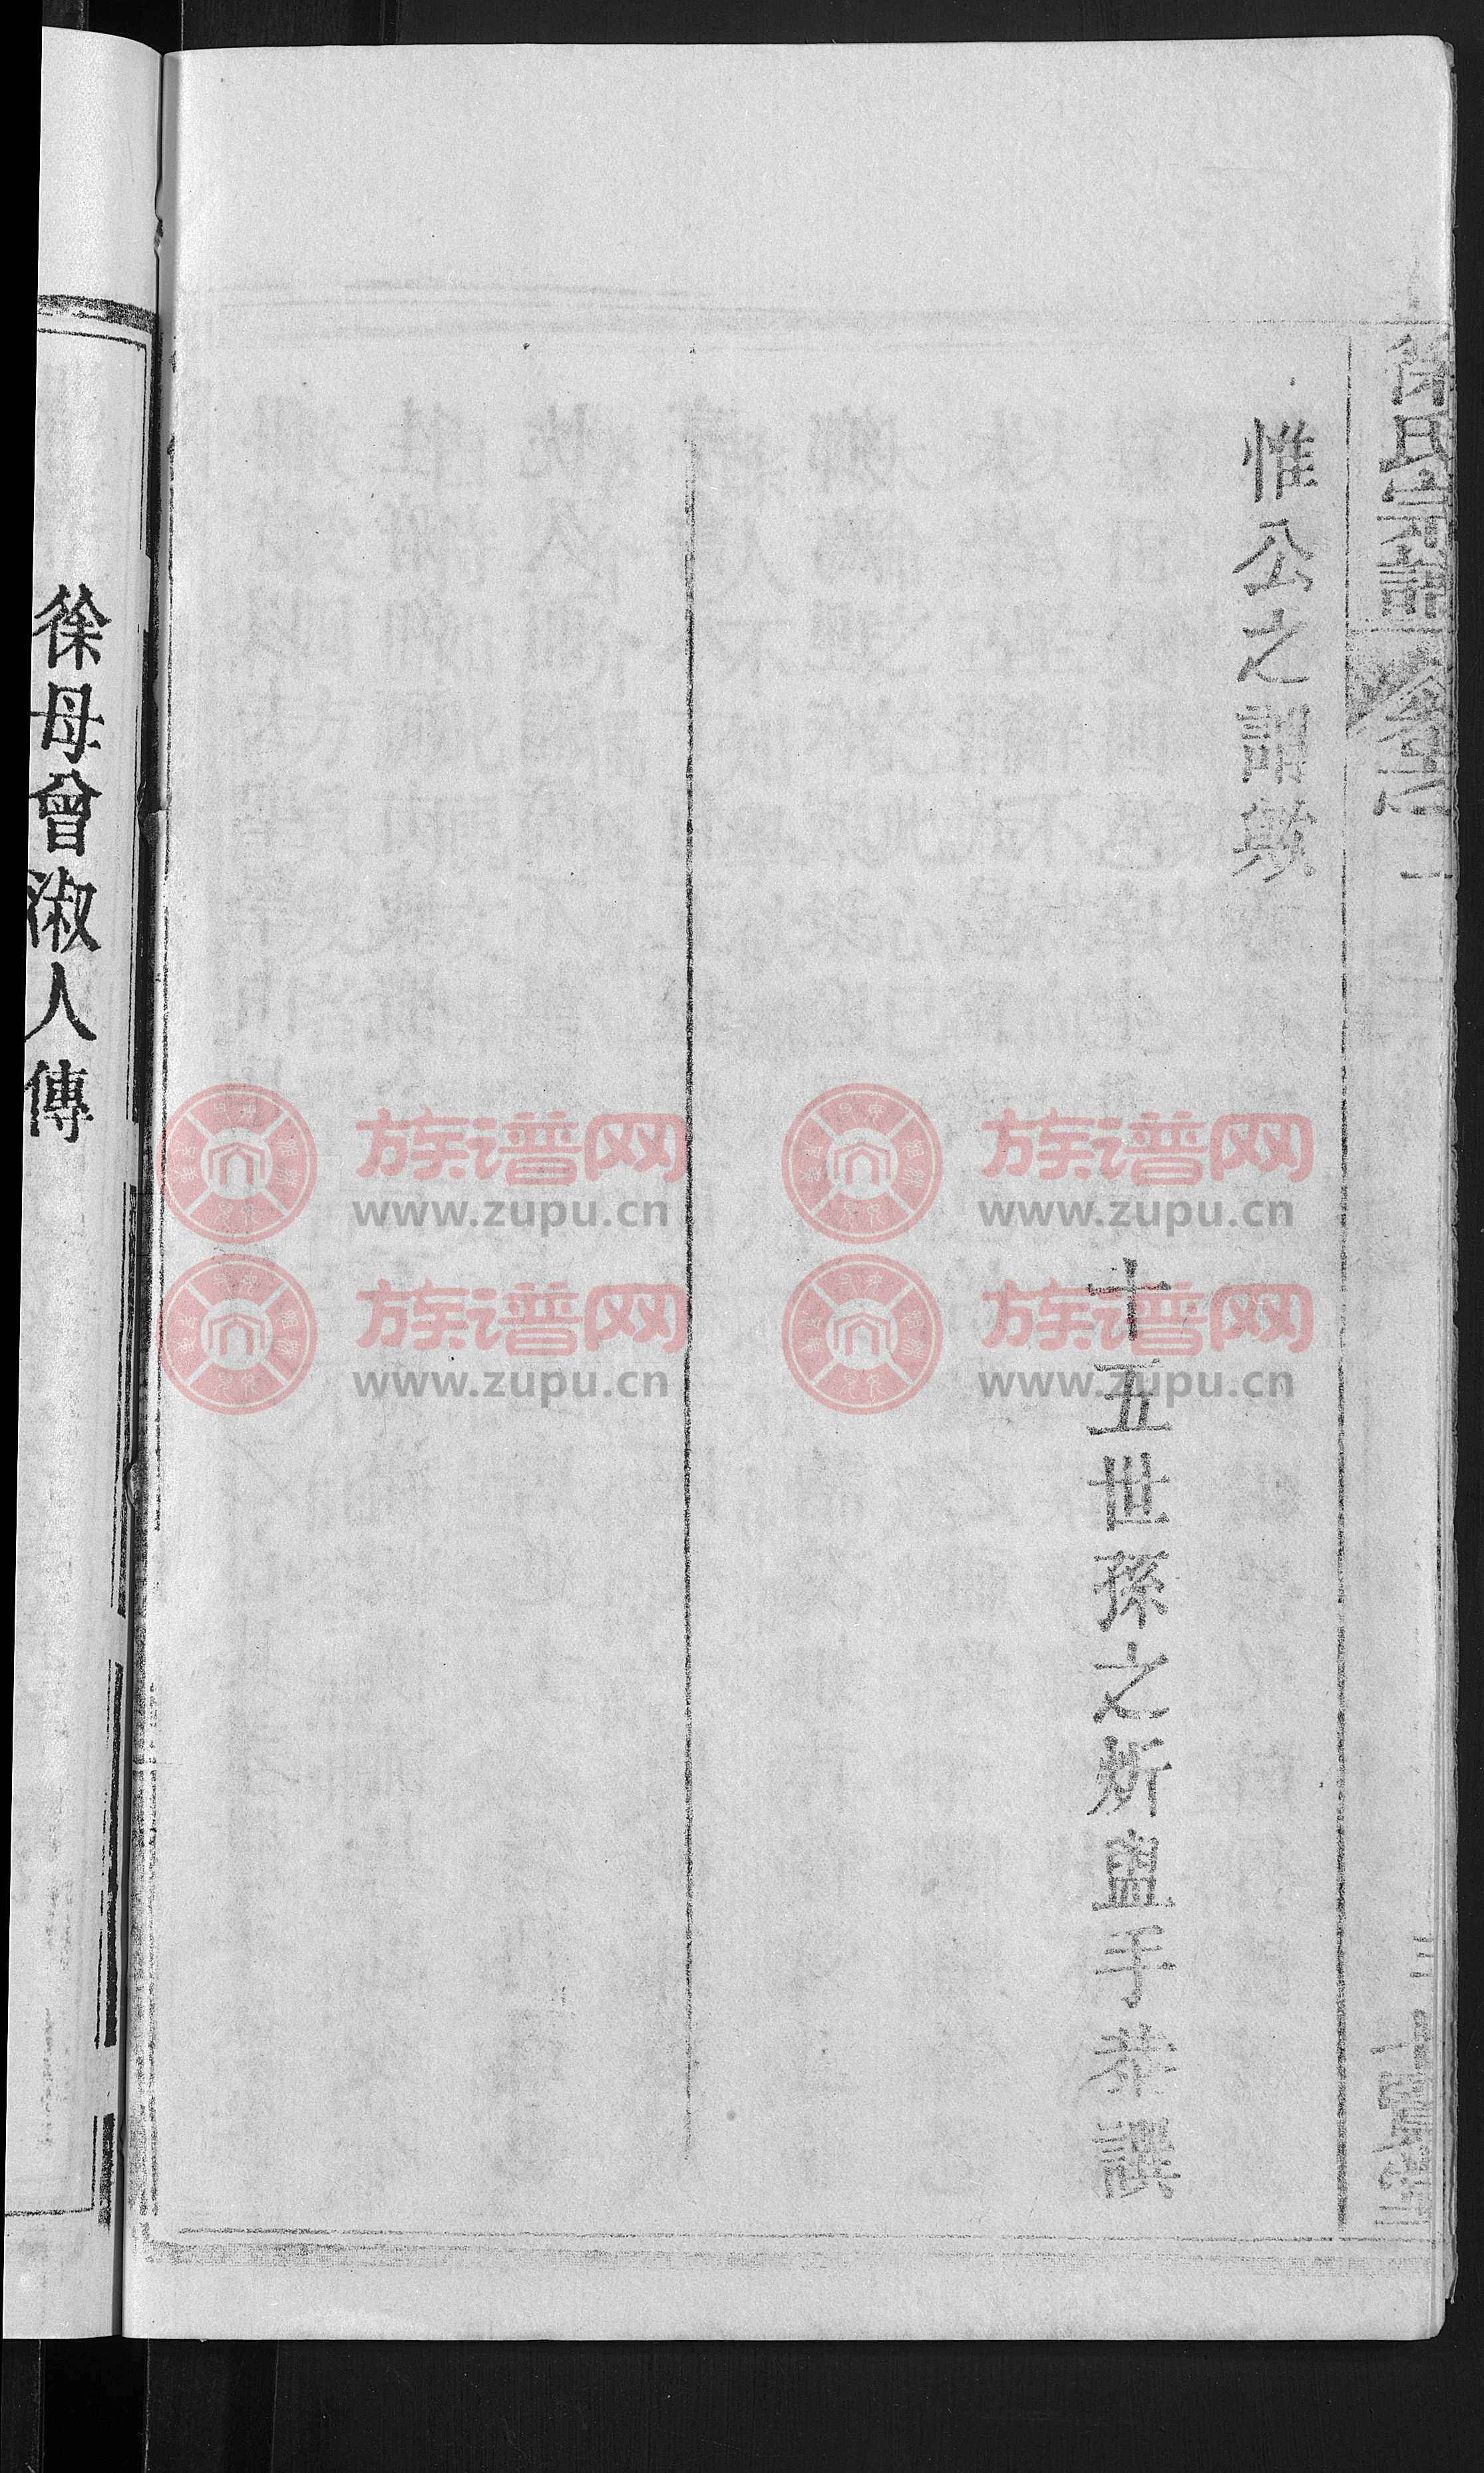 徐氏宗譜
卷之
惟公之謂歟
十五世孫之炘盥手恭譔
徐母曾淑人傳
族谱网
www.zupu.cn
族谱网
www.zupu.cn
族谱网
www.zupu.cn
族谱网
www.zupu.cn